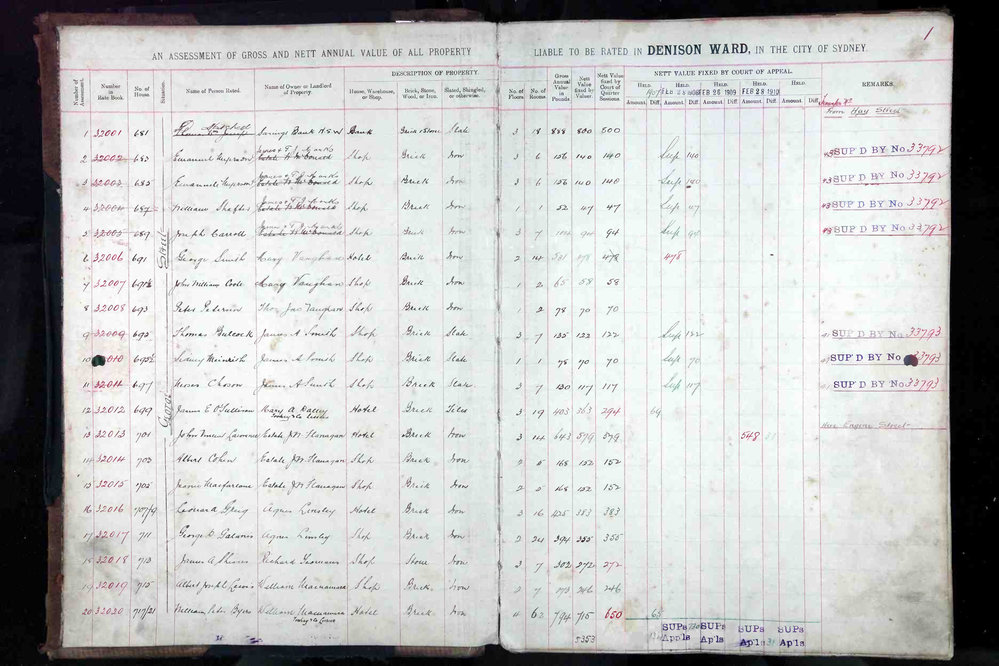 1
AN ASSESSMENT OF GROSS AND NETT ANNUAL VALUE OF ALL PROPERTY LIABLE TO BE RATED IN DENISON WARD, IN THE CITY OF SYDNEY.
DESCRIPTION OF PROPERTY.
NETT VALUE FIXED BY COURT OF APPEAL.
Number of Assessment. Number in Rate Book. No. of House. Situation. Name of Person Rated. Name of Owner or Landlord of Property. House, Warehouse, or Shop. Brick, Stone, Wood, or Iron. Slated, Shingled, or otherwise. No. of Floors No. of Rooms Gross Annual Value in Pounds Nett Value by Valuer Nett Value fixed by Court of Quarter Sessions REMARKS.
HELD. HELD. HELD. HELD. HELD.
FEB 26 1909 FEB 28 1910
Amount. Diff. Amount. Diff. Amount. Diff. Amount. Diff. Amount. Diff.
From Hay Street
1 32001 681 Savings Bank NSW Bank Brick Stone Slate 3 18 888 800 500
2 32002 683 Emanuel Shop Brick Iron 3 6 156 140 140 Sup 140 SUP'D BY No 33792
3 32003 685 Emanuel Shop Brick Iron 3 6 156 140 140 Sup 140 SUP'D BY No 33792
4 32004 687 William Shop Brick Iron 1 1 52 47 47 Sup 47 SUP'D BY No 33792
5 32005 689 Joseph Carroll Shop Brick Iron 3 7 104 94 94 Sup 94 SUP'D BY No 33792
6 32006 691 George Smith Mary Vaughan Hotel Brick Iron 2 14 531 478 478 478
7 32007 691½ John William Coole Mary Vaughan Shop Brick Iron 1 2 65 58 58
8 32008 693 Peter Peterson Thos Jas Vaughan Shop Brick Iron 1 2 78 70 70
9 32009 695 Thomas James A Smith Shop Brick Slate 3 7 135 122 122 Sup 122 SUP'D BY No 33793
10 010 695½ Sidney James A Smith Shop Brick Slate 1 78 70 70 Sup 70 SUP'D BY No 33793
11 32011 697 James A Smith Shop Brick Slate 3 7 130 117 117 Sup 117 SUP'D BY No 33793
George Street
12 32012 699 James E O'Sullivan Mary A Hotel Brick Tiles 3 19 403 363 294 69
Tooheys Ltd
Hay Engine Street
13 32013 701 John Lawrence Estate J M Flanagan Hotel Brick Iron 3 14 643 579 579 548 31
14 32014 703 Albert Cohen Estate J M Flanagan Shop Brick Iron 2 5 168 152 152
15 32015 705 Jeanie Macfarlane Estate J M Flanagan Shop Brick Iron 2 5 168 152 152
16 32016 707/9 Greig Agnes Linsley Hotel Brick Iron 3 16 425 383 383
17 32017 711 George D Agnes Linsley Shop Brick Iron 2 24 394 355 355
18 32018 713 James A Richard Shop Stone Iron 3 7 302 272 272
19 32019 715 Albert Joseph Lewis William Macnamara Shop Brick Iron 2 7 273 246 246
20 32020 717/21 William Peter Byrne William Macnamara Hotel Brick Iron 4 62 794 715 650 65
5353
SUPs SUPs SUPs SUPs
Apls Apls Apls Apls